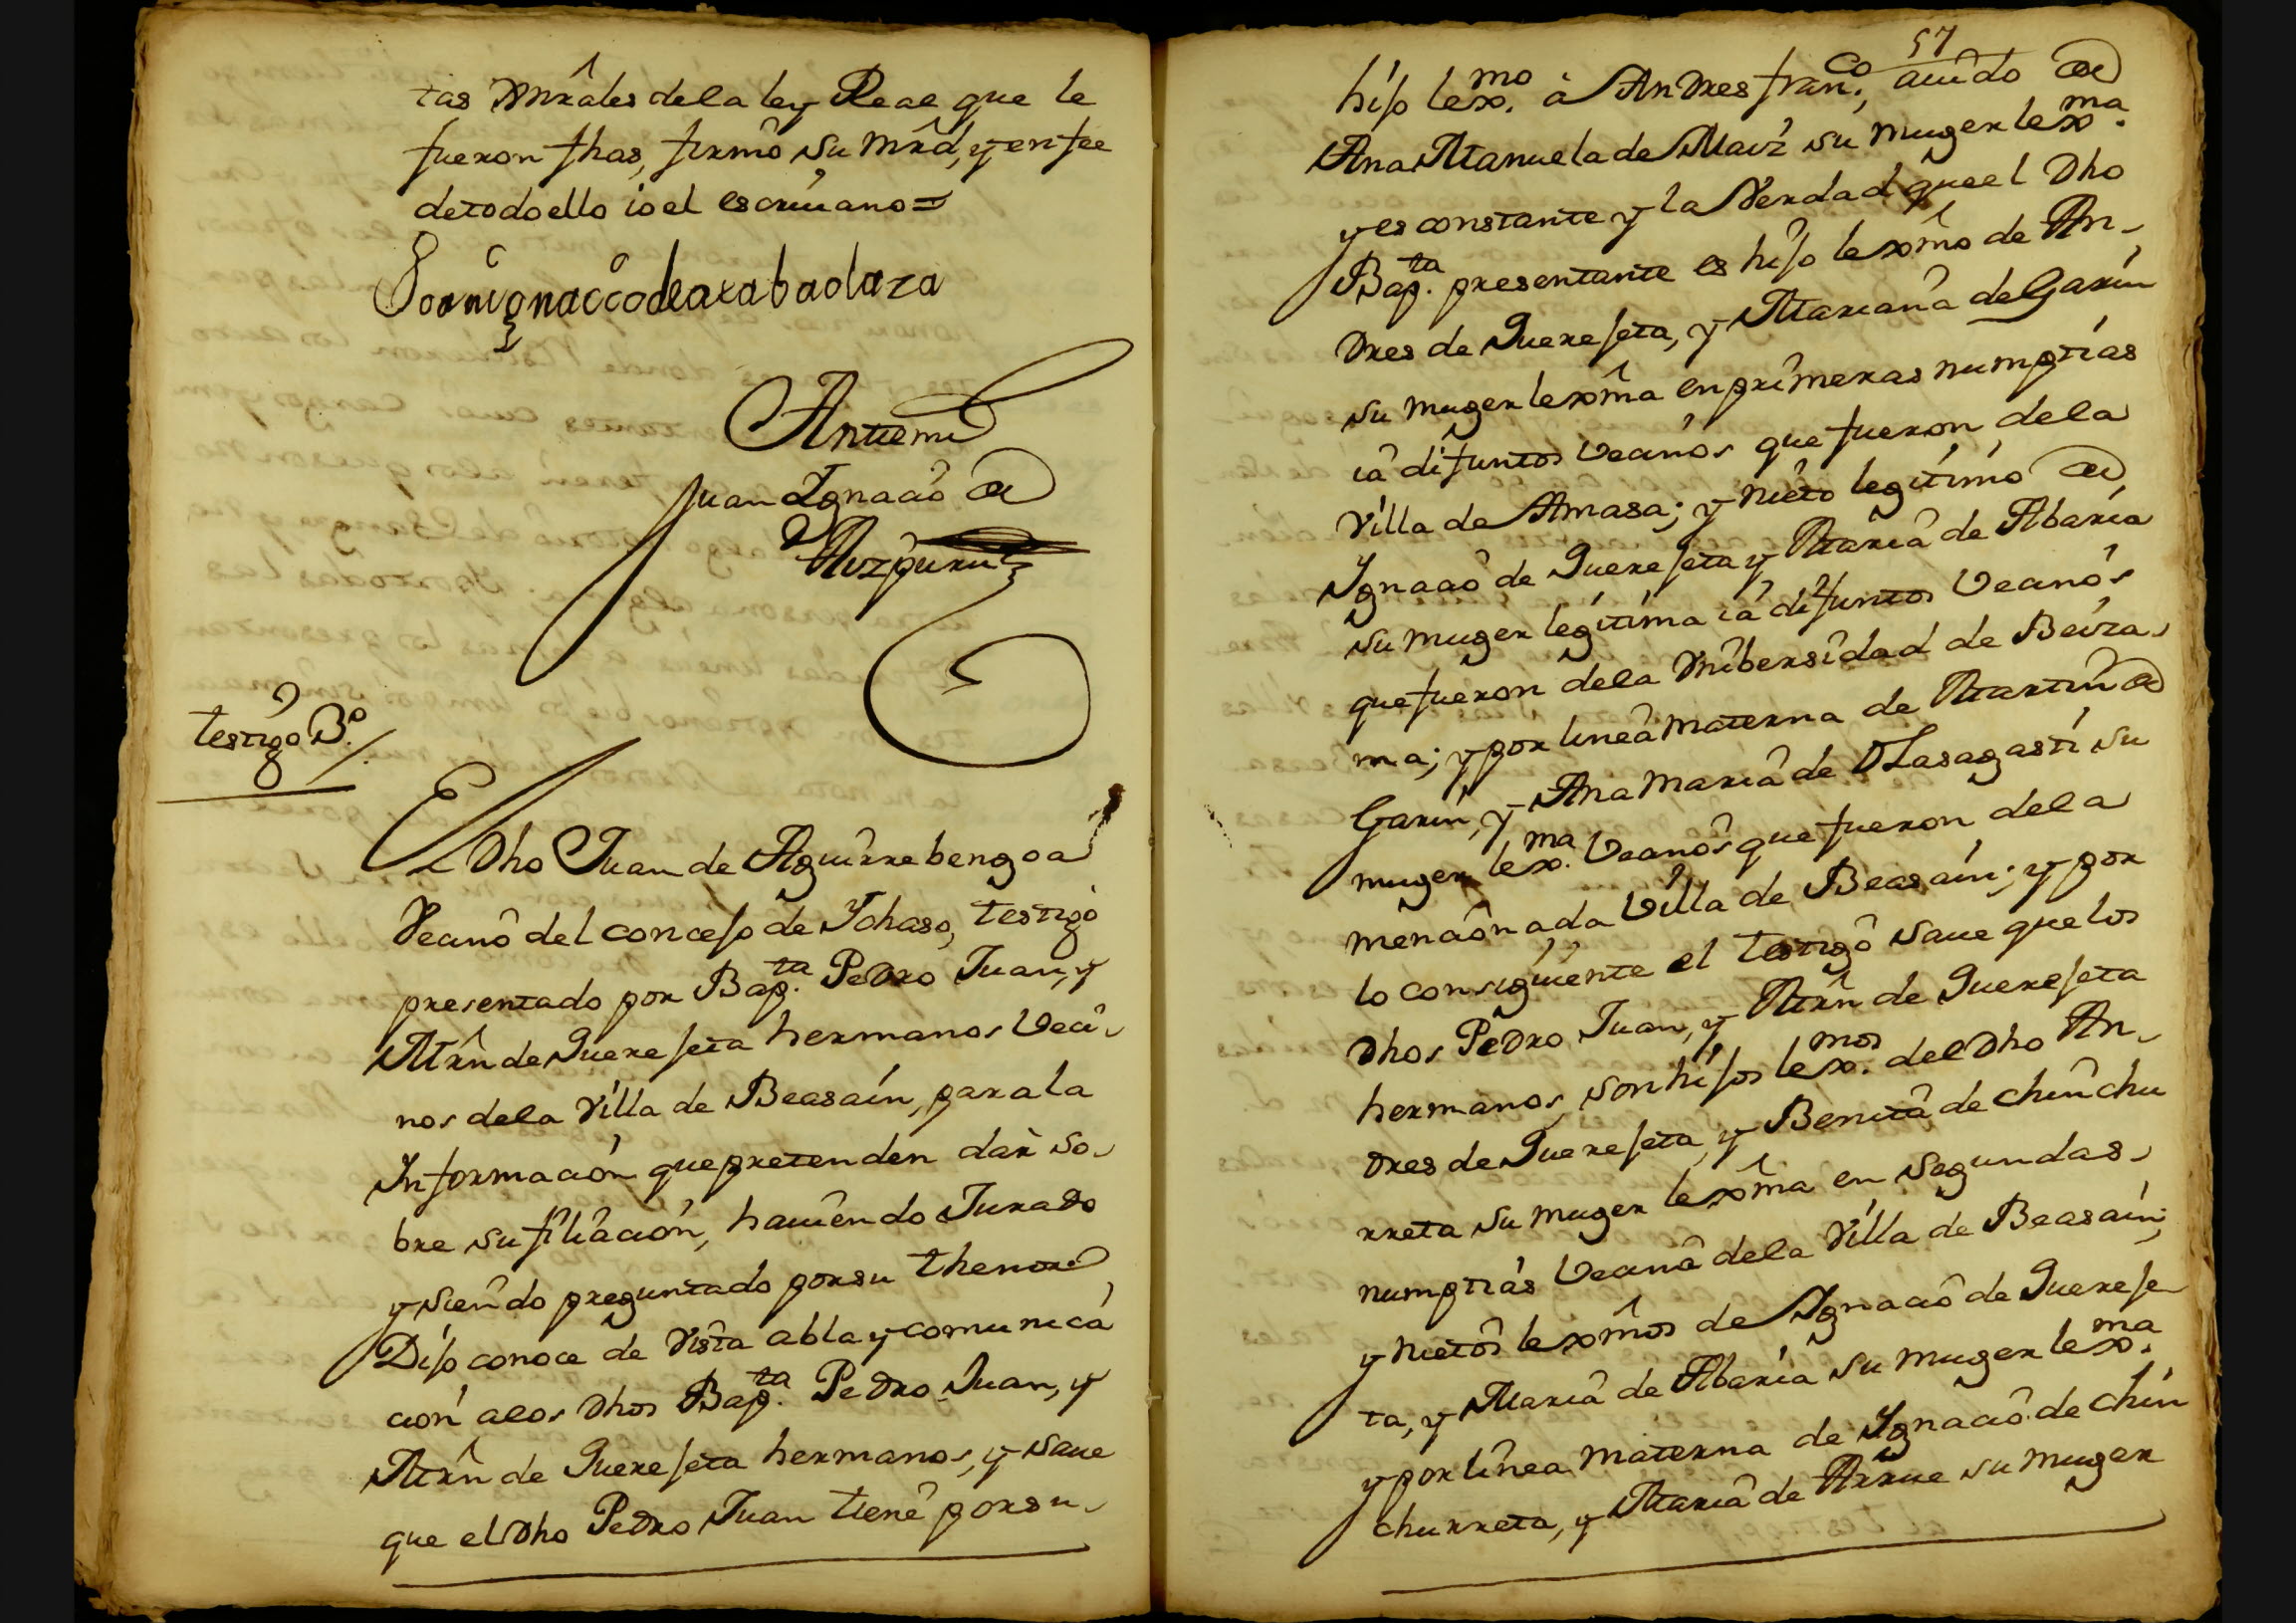 tas Gnrâles dela ley Real que le
fueron fhas, firmô su Mrd, y en fee
de todo ello io el escriuano =
Joan ignaciodearabaolaza
Antemi
Juan Ignacio de
Aizpuru
testigo 3º.
El Dho Juan de Aguirrebengoa
Vecino del concejo de Ychaso, testigo
presentado por Bapᵗᵃ. Pedro Juan, y
Mrn̂ de Guerejeta hermanos Veci-
nos dela Villa de Beasaín, para la
Informacion que pretenden dar so-
bre su filiación, hauiendo Jurado
y siendo preguntado por su thenor
Dijo conoce de Vista abla y comunica
ción alos Dhos Bapᵗᵃ. Pedro Juan, y
Mrn̂ de Guerejeta hermanos, y saue
que el Dho Pedro Juan tiene por su
57
hijo lexᵐᵒ. à Andres franᶜᵒ., auido de
Ana Manuela de Maiz su muger lexᵐᵃ.
y es constante y la Verdad que el Dho
Bapᵗᵃ. presentante es hijo lexm̂o de An-
dres de Guerejeta, y Mariana de Garin
su muger lexm̂a en primeras numptias
ia difuntos Vecinos que fueron dela
Villa de Amasa; y nieto legitimo de
Ygnacio de Guerejeta y Maria de Abaria
su muger legitima ia difuntos Vecinos
que fueron dela Vnibersidad de Beiza-
ma; y por linea materna de Martin de
Garin, y Ana Maria de OLasagasti su
muger lexᵐᵃ. Vecinos que fueron dela
mencionada Villa de Beasaín; y por
lo consiguiente el testigo saue que los
Dhos Pedro Juan, y Mrn̂ de Guerejeta
hermanos, son hijos lexᵐᵒˢ. del Dho An-
dres de Guerejeta, y Benita de chinchu
rreta su muger lexm̂a en segundas
numptias Vecina dela Villa de Beasaín;
y nietos lexm̂os de Ygnacio de Guereje
ta, y Maria de Abaria su muger lexᵐᵃ.
y por linea materna de Ygnacio de chin
churreta, y Maria de Arrue su muger